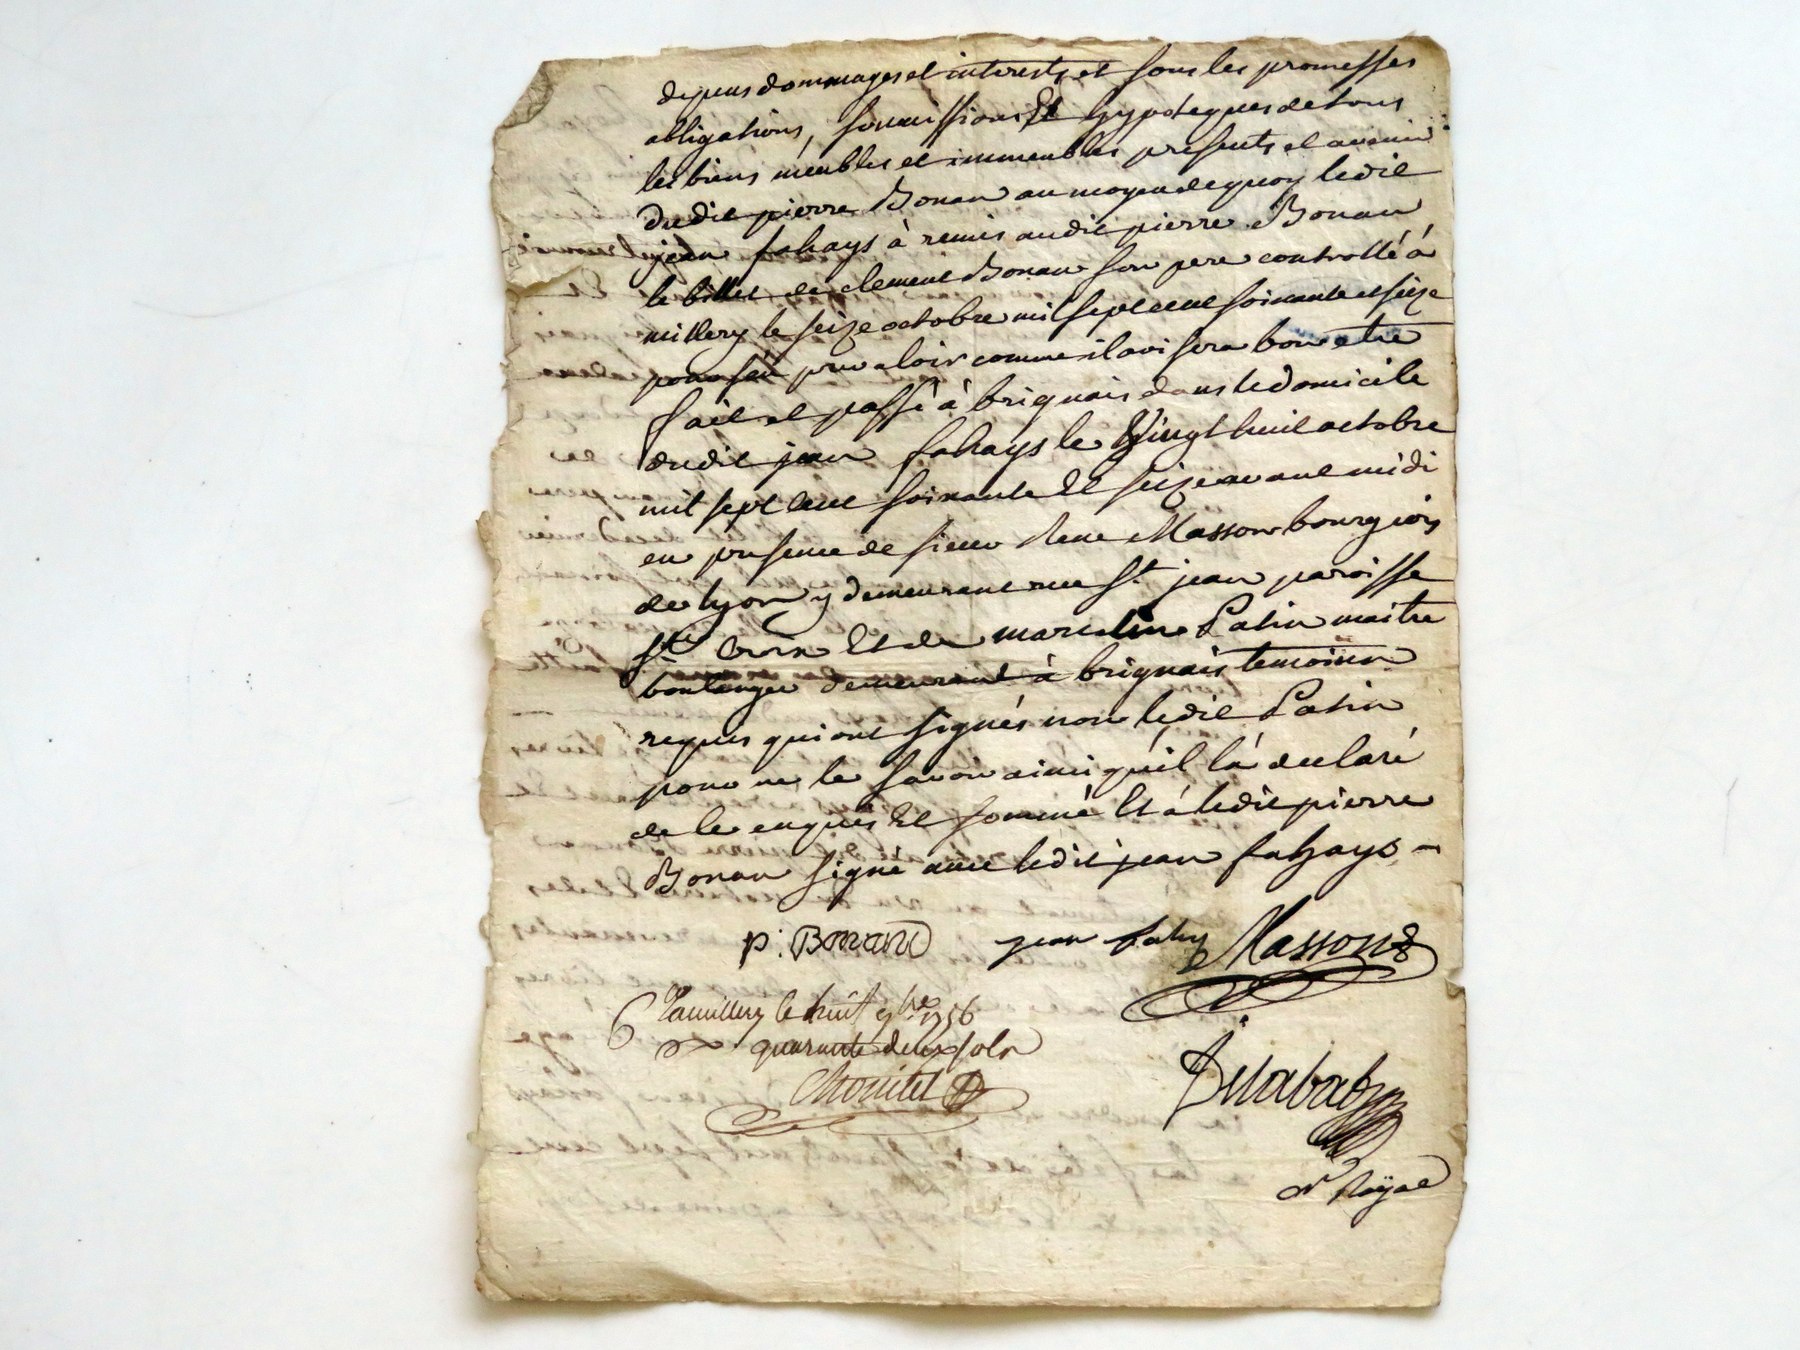 depens dommages et interests et sous les promesses
obligations, soumissions Et hypoteques de tous
les biens meubles et immeubles presents et avenir
dudit pierre Bonan au moyen de quoy ledit
jean fahays à remis audit pierre Bonan
le billet de clement Bonan son pere controllé á
millery le seize octobre mil sept cent soixante et seize
pour sen prevaloir comme il avisera bon etre
fait et passé à brignais dans le domicile
dudit jean fahays le Vingt huit octobre
mil sept cent soixante Et seize avant midi
en presence de sieur Rene Masson bourgeois
de lyon y demeurant rue St. jean paroisse
Ste Croix Et de marcelin Patin maitre
boulanger demeurant à brignais temoins
requis qui ont signés non ledit Patin
pour ne le savoir ainsi qu'il l'a declaré
de le enquis Et sommé Et á ledit pierre
Bonan signé avec ledit jean fahays -
p: Bonand jean fahy Masson
le huit 9bre
quarante deux sols
Delabaty
nre Royal